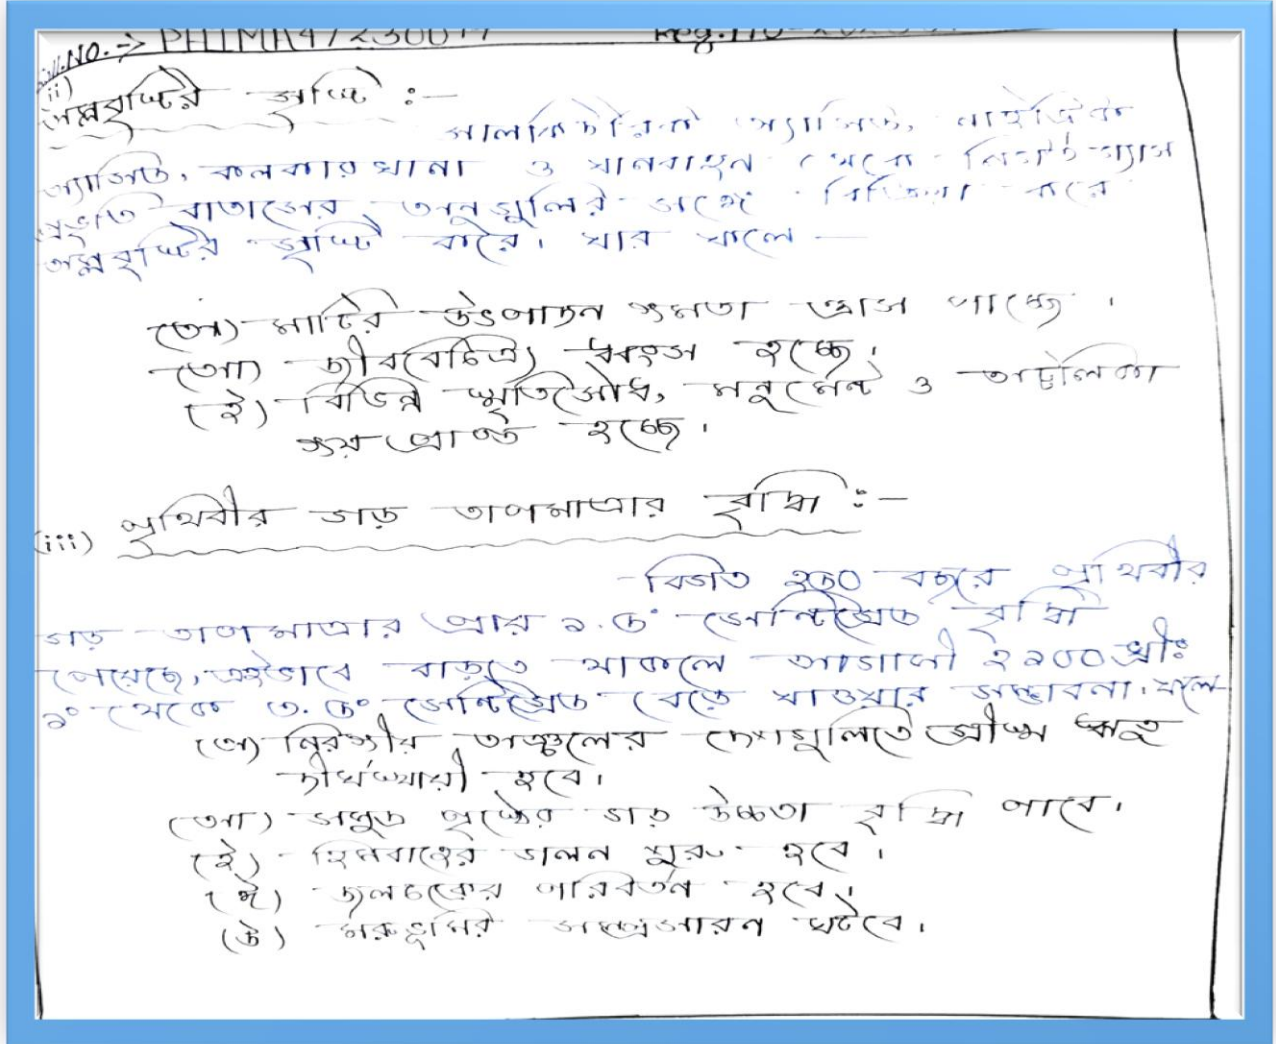 ii)
অম্লবৃষ্টির সৃষ্টি :-
সালফিউরিক অ্যাসিড, নাইট্রিক
অ্যাসিড, কলকারখানা ও যানবাহন থেকে নির্গত গ্যাস
প্রভৃতি বাতাসের অনুগুলির সঙ্গে বিক্রিয়া করে
অম্লবৃষ্টির সৃষ্টি করে। যার ফলে —
(অ) মাটির উৎপাদন ক্ষমতা হ্রাস পাচ্ছে।
(আ) জীববৈচিত্র্য ধ্বংস হচ্ছে।
(ই) বিভিন্ন স্মৃতিসৌধ, মনুমেন্ট ও অট্টালিকা
ক্ষয়প্রাপ্ত হচ্ছে।
(iii) পৃথিবীর গড় তাপমাত্রার বৃদ্ধি :-
- বিগত ২৫০ বছরে পৃথিবীর
গড় তাপমাত্রার প্রায় ১.৫° সেন্টিগ্রেড বৃদ্ধি
পেয়েছে, এইভাবে বাড়তে থাকলে আগামী ২১০০ খ্রীঃ
১° থেকে ৩.৫° সেন্টিগ্রেড বেড়ে যাওয়ার সম্ভাবনা। ফলে
(অ) নিরক্ষীয় অঞ্চলের দেশগুলিতে গ্রীষ্ম ঋতু
দীর্ঘস্থায়ী হবে।
(আ) সমুদ্র পৃষ্ঠের গড় উচ্চতা বৃদ্ধি পাবে।
(ই) হিমবাহের গলন শুরু হবে।
(ঈ) জলচক্রের পরিবর্তন হবে।
(উ) মরুভূমির সম্প্রসারন ঘটবে।